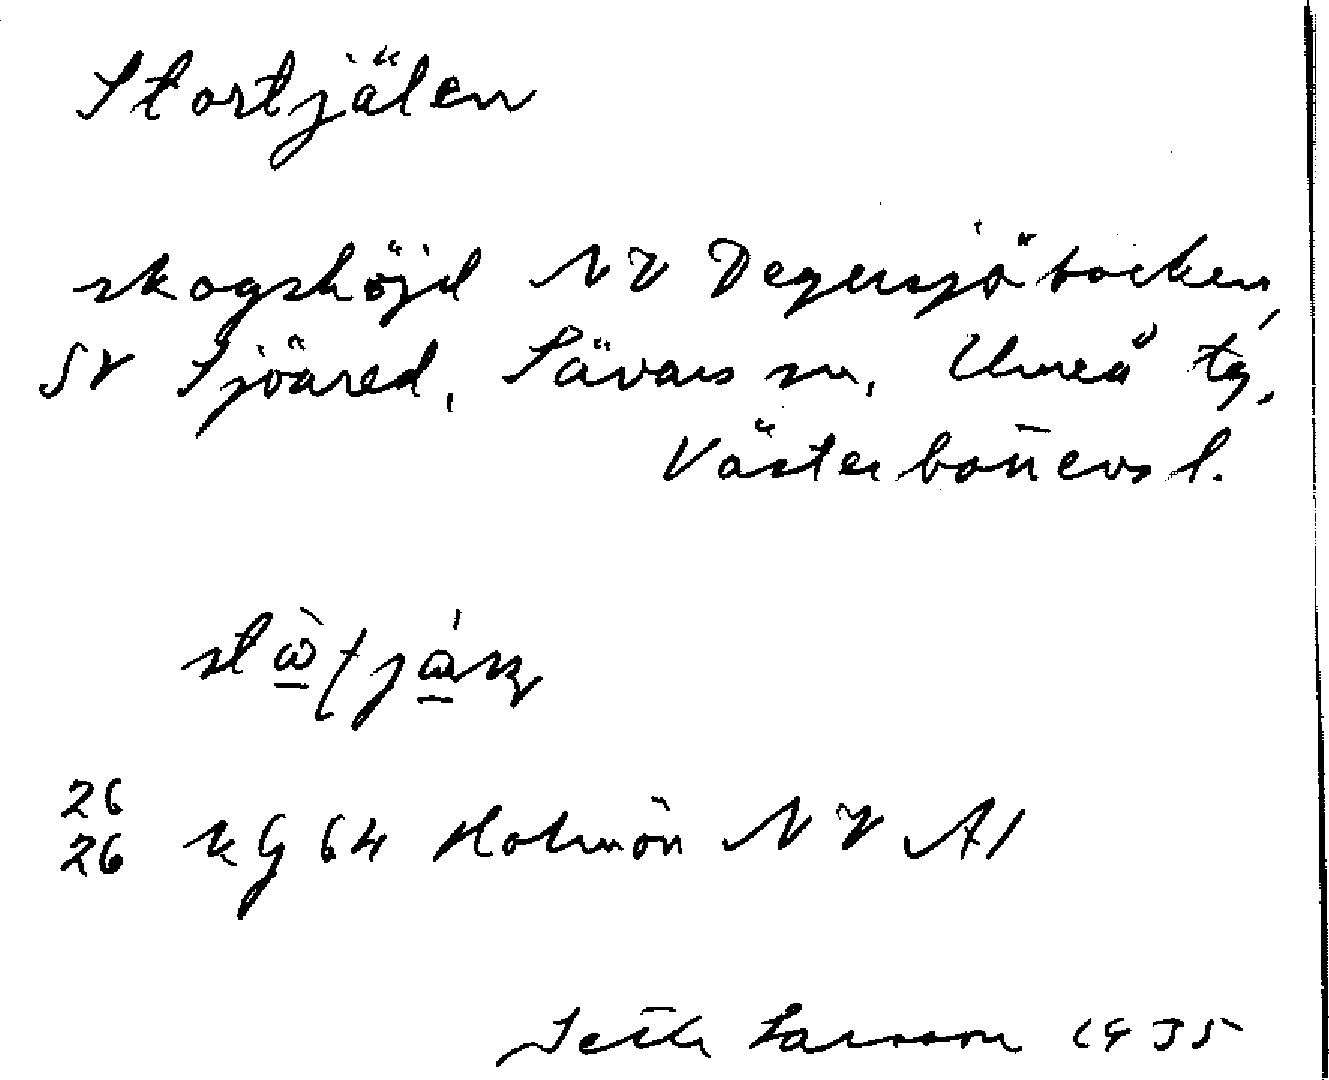 Stortjälen
skogshöjd NV Degersjöbäcken,
SV Sjöåred, Sävars sn, Umeå tg,
Västerbotten̄s l.
26
26 kG 64 Holmön NV A1
Seth Larsson 1935